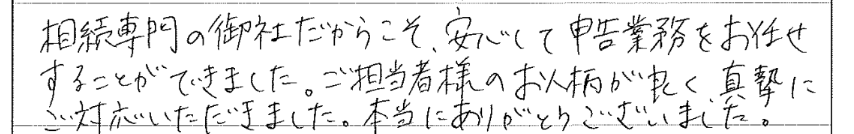 相続専門の御社だからこそ、安心して申告業務をお任せ
することができました。ご担当者様のお人柄が良く、真摯に
ご対応いただきました。本当にありがとうございました。